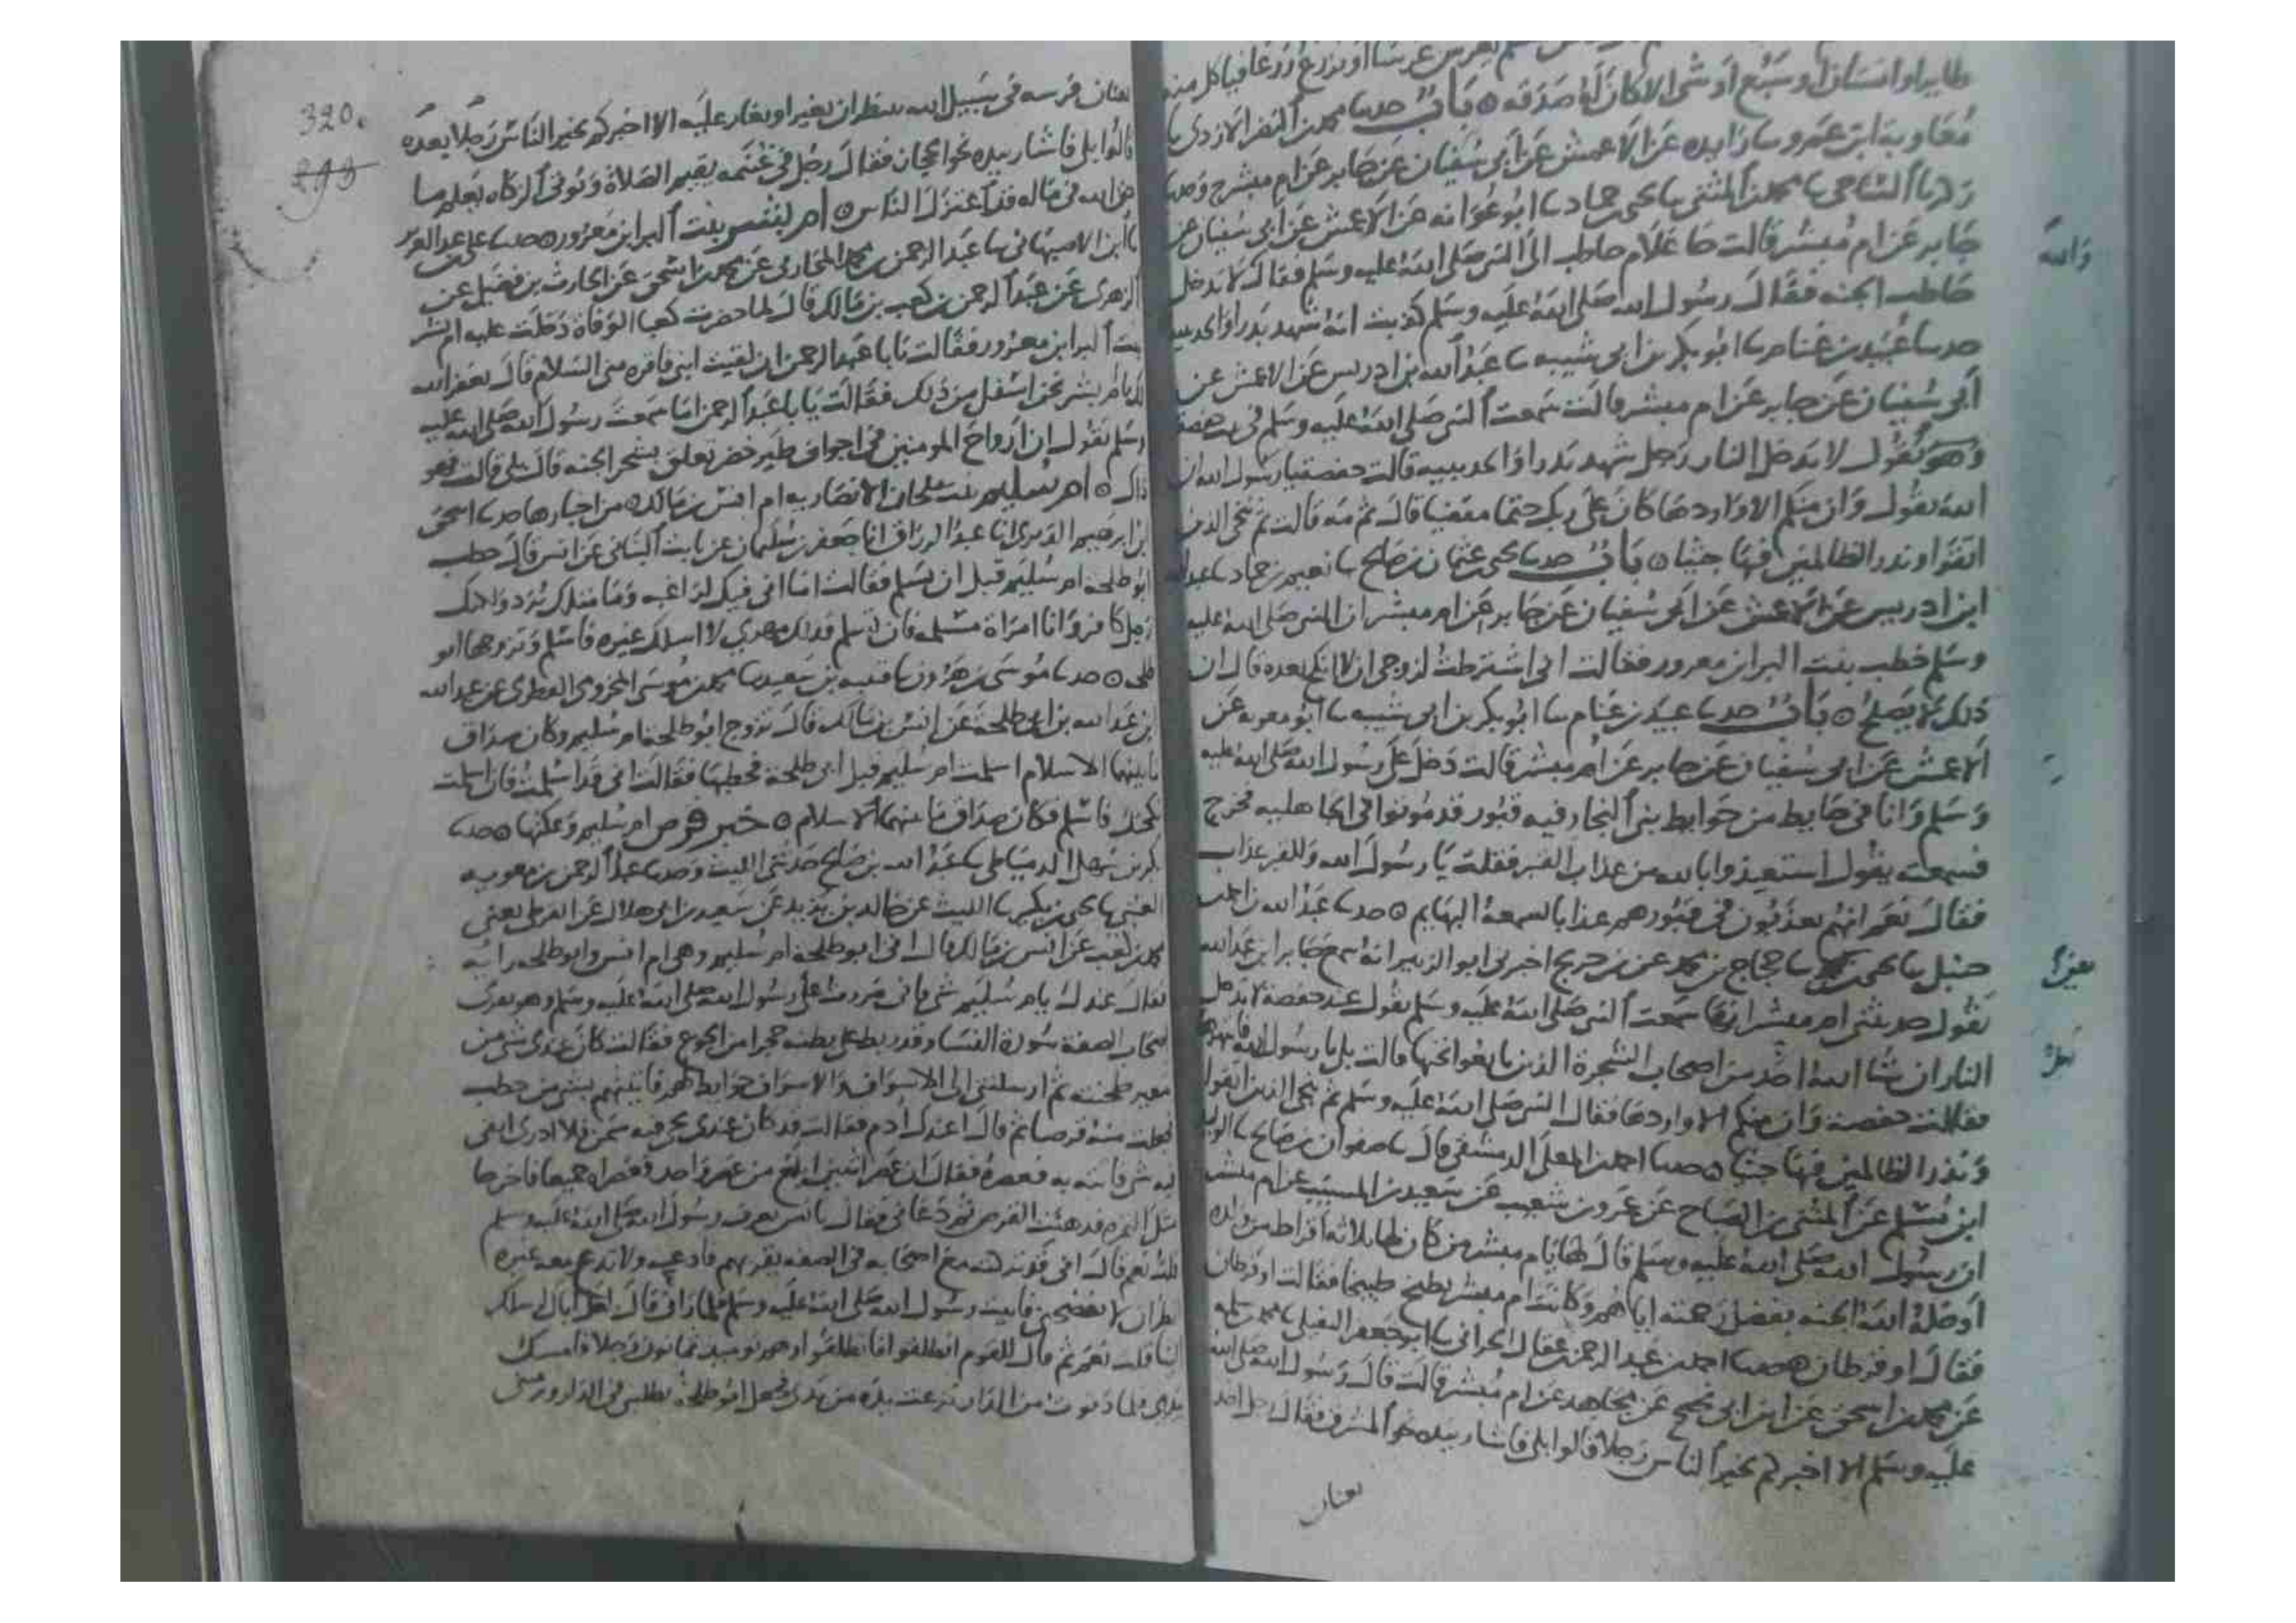 طايرا او انسانا او سبع او شى الا كان له صدقه ۞ باب حدثنا محمد بن النضر الازدى ثنا
معاويه ابن عمرو ثنا زايده عن الاعمش عن ابى سفيان عن جابر عن ام مبشر ح وحدثنا
ثنا محمد بن المثنى ثنا يحيى بن حماد ثنا ابو عوانه عن الاعمش عن ابى سفيان عن
جابر عن ام مبشر قالت جا غلام حاطب الى النبى صلى الله عليه وسلم فقال لا يدخل
والله
حاطب الجنه فقال رسول الله صلى الله عليه وسلم كذبت انه شهد بدرا والحديبيه
حدثنا عبيد بن غنام ثنا ابو بكر بن ابى شيبه ثنا عبد الله بن ادريس عن الاعمش عن
ابى سفيان عن جابر عن ام مبشر قالت سمعت النبى صلى الله عليه وسلم فى بيت حفصه
وهو يقول لا يدخل النار رجل شهد بدرا والحديبيه قالت حفصه يا رسول الله ان
الله يقول وان منكم الا واردها كان على ربك حتما مقضيا قال ثم مه قالت ثم ننجى الذين
اتقوا ونذر الظالمين فيها جثيا ۞ باب حدثنا يحيى بن عثمان بن صالح ثنا نعيم بن حماد ثنا عبد الله
ابن ادريس عن الاعمش عن ابى سفيان عن جابر عن ام مبشر ان النبى صلى الله عليه
وسلم خطب بنت البرا بن معرور فقالت انى اشترطت لزوجى ان لا انكح بعده قال ان
ذلك لا يصلح ۞ باب حدثنا عبيد بن غنام ثنا ابو بكر بن ابى شيبه ثنا ابو معويه عن
الاعمش عن ابى سفيان عن جابر عن ام مبشر قالت دخل على رسول الله صلى الله عليه
وسلم وانا فى حايط من حوايط بنى النجار فيه قبور قد موتوا فى الجاهليه فخرج
فسمعته يقول استعيذوا بالله من عذاب القبر فقلت يا رسول الله وللقبر عذاب
فقال نعم انهم يعذبون فى قبورهم عذابا تسمعه البهايم ۞ حدثنا عبد الله بن احمد بن
حنبل ثنا يحيى بن ثنا حجاج بن محمد عن بن جريج اخبرنى ابو الزبير انه سمع جابر ابن عبد الله
يقول حدثتنى ام مبشر انها سمعت النبى صلى الله عليه وسلم يقول عند حفصه لا يدخل
النار ان شا الله احد من اصحاب الشجرة الذين بايعوا تحتها قالت بلى يا رسول الله فانتهرها
فقالت حفصة وان منكم الا واردها فقال النبى صلى الله عليه وسلم ثم ننجى الذين اتقوا
ونذر الظالمين فيها جثيا ۞ حدثنا احمد بن المعلى الدمشقى قال ثنا صفوان بن صالح ثنا الوليد
ابن مسلم عن المثنى بن الصباح عن عمرو بن شعيب عن سعيد بن المسيب عن ام مبشر
ان رسول الله صلى الله عليه وسلم قال لها يا ام مبشر من كان لها ثلاثه افراط من ولده
ادخله الله الجنه بفضل رحمته اياهم وكانت ام مبشر تطبخ طبيخا فقالت او فرطان
فقال او فرطان حدثنا احمد بن عبد الرحمن بن عقال الحرانى ثنا ابو جعفر النفيلى ثنا محمد بن سلمه
عن محمد بن اسحق عن ابن ابى نجيح عن مجاهد عن ام مبشر قالت قال رسول الله صلى الله
عليه وسلم الا اخبركم بخير الناس رجلا قالوا بلى فاشار بيده نحو المشرق فقال رجل اخذ
بعنان
320
بعنان فرسه فى سبيل الله ينتظر ان يغير او يغار عليه الا اخبركم بخير الناس رجلا بعده
قالوا بلى فاشار بيده نحو الحجاز فقال رجل فى غنمه يقيم الصلاة ويوتى الزكاه يعلم ما
حق الله فى ماله قد اعتزل الناس ۞ ام بشر بنت البرا بن معرور ۞ حدثنا على بن عبد العزيز
ثنا ابن الاصبهانى ثنا عبد الرحمن بن محمد المحاربى عن محمد بن اسحق عن الحارث بن فضيل عن
الزهرى عن عبد الرحمن بن كعب بن مالك قال لما حضرت كعبا الوفاة دخلت عليه ام بشر
بنت البرا بن معرور فقالت يا با عبد الرحمن ان لقيت ابنى فاقره منى السلام قال يغفر الله
لك يا ام بشر نحن اشغل من ذلك فقالت يا با عبد الرحمن اما سمعت رسول الله صلى الله عليه
وسلم يقول ان ارواح المومنين فى اجواف طير خضر تعلق بشجر الجنه قال بلى قالت فهو
ذاك ۞ ام سليم بنت ملحان الانصاريه ام انس بن مالك من اخبارها حدثنا اسحق
ابن ابرهيم الدبرى انا عبد الرزاق انا جعفر بن سليمان عن ثابت البنانى عن انس قال خطب
ابو طلحه ام سليم قبل ان يسلم فقالت اما انى فيك لراغبه وما مثلك يرد ولكنك
رجل كافر وانا امراة مسلمه فان تسلم فذلك مهرى لا اسلك غيره فاسلم وتزوجها ابو
طلحه ۞ حدثنا موسى بن هرون ثنا قتيبه بن سعيد ثنا محمد بن موسى المخزومى الفطرى عن عبد الله
بن عبد الله بن ابى طلحة عن انس بن مالك قال تزوج ابو طلحه ام سليم وكان صداق
ما بينهما الاسلام اسلمت ام سليم قبل ابى طلحة فخطبها فقالت انى قد اسلمت فان اسلمت
نكحتك فاسلم فكان صداق ما بينهما الاسلام ۞ خبر قرص ام سليم وعكتها ۞ حدثنا
بكر بن سهل الدمياطى ثنا عبد الله بن صالح حدثنى الليث وحدثنا عبد الرحمن بن معويه
العتبى ثنا يحيى بن بكير ثنا الليث عن خالد بن يزيد عن سعيد بن ابى هلال عن القرظى يعنى
محمد بن كعب عن انس بن مالك قال اتى ابو طلحة ام سليم وهى ام انس وابو طلحه رابه
فقال عندك يا ام سليم شى فانى مررت على رسول الله صلى الله عليه وسلم وهو يقرى
اصحاب الصفة سورة النسا وقد ربط على بطنه حجرا من الجوع فقالت كان عندى شى من
شعير طحنته ثم ارسلتنى الى الاسواف والاسواف حوايط لهم فاتيتهم بشى من حطب
فجعلت منه قرصا ثم قال اعندك ادم فقالت قد كان عندى نحى فيه سمن فلا ادرى ابقى
فيه شى فاتته به فعصره فقال ان عصر اثنين ابلغ من عصر واحد فعصراه جميعا فاخرجا
مثل التمره فدهنت القرص ثم دعانى فقال يا انس تعرف رسول الله صلى الله عليه وسلم
قلت نعم قال انى قد تركته مع اصحابه فى الصفه يقريهم فادعه ولا تدع معه غيره
انظر ان لا تفضحنى فاتيت رسول الله صلى الله عليه وسلم فلما رانى قال لعل اباك ارسلك
الينا قلت نعم ثم قال للقوم انطلقوا فانطلقوا وهم يوميذ ثمانون رجلا فامسك
بيدى فلما دنوت من الدار نزعت يده من يدى فجعل ابو طلحه يطلبنى فى الدار ويرمينى